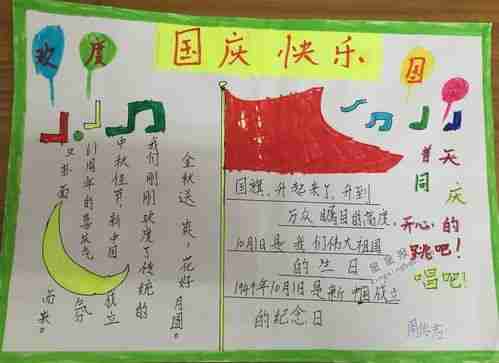 国庆快乐
欢度国
金秋送爽,花好月圆。
我们刚刚欢度了传统的
中秋佳节,新中国成立
61周年的喜庆气氛
又扑面而来。
国旗,升起来了,升到
万众瞩目的高度,
10月1日是我们伟大祖国
的生日
1949年10月1日是新中国成立
的纪念日
普天
同庆
开心的
跳吧!
唱吧!